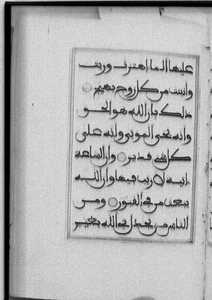 عليها الما اهتزت وربت
وانبتت من كل زوج بهيج
ذلك بان الله هو الحق
وانه يحي الموتى وانه على
كل شي قدير وان الساعة
اتية لا ريب فيها وان الله
يبعث من في القبور ومن
الناس من يجدل في الله بغير